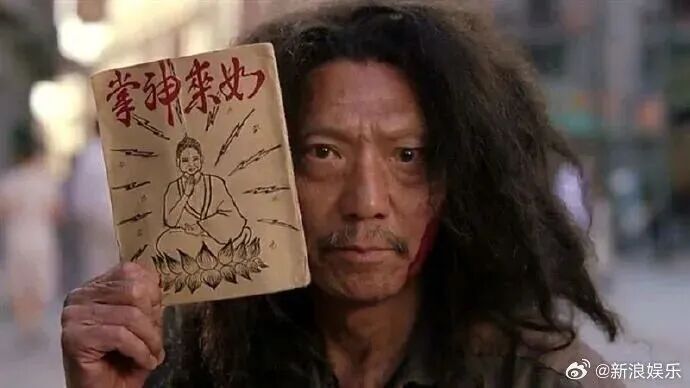 掌神來如
@新浪娱乐